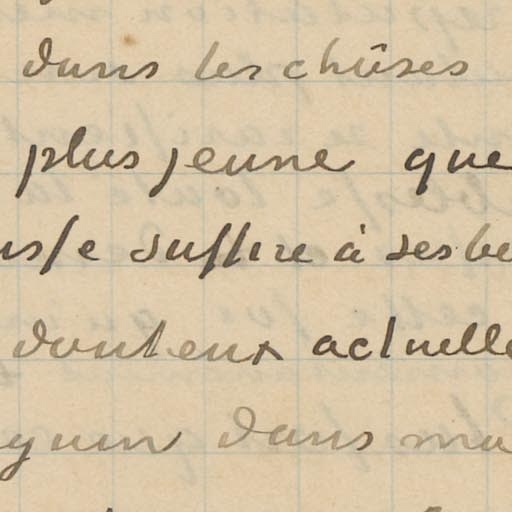 dans les chûses
plus jeune que
usse suffire à ses be
douteux actuelle
guin dans ma